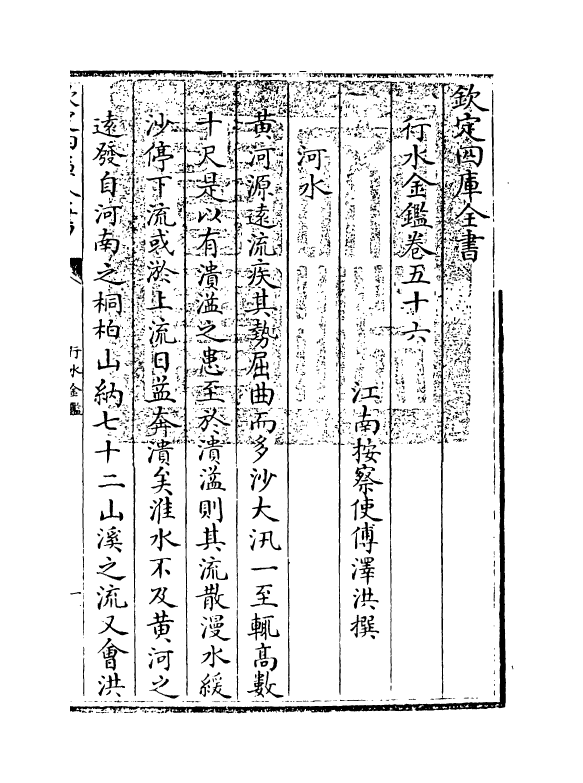 欽定四庫全書
行水金鑑卷五十六
江南按察使傅澤洪撰
河水
黄河源遠流疾其勢屈曲而多沙大汛一至輒高數
十尺是以有潰溢之患至於潰溢則其流散漫水緩
沙停下流或淤上流日益奔潰矣淮水不及黄河之
遠發自河南之桐柏山納七十二山溪之流又會洪
行水金鑑
一